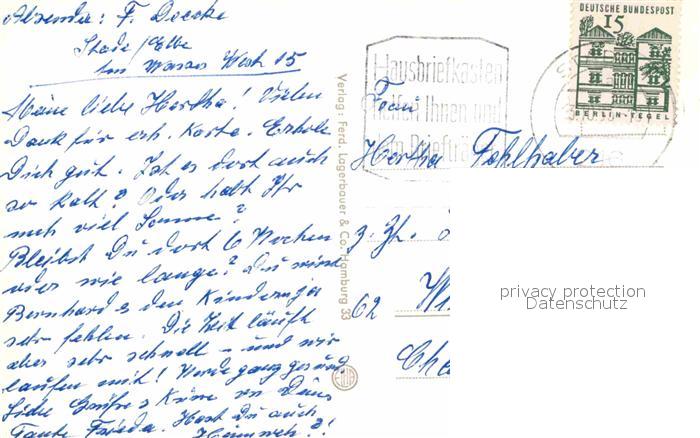 Absender: F. Doecke
Stade/Elbe
Am Wasser West 15
Meine liebe Hertha! Vielen
Dank für erh. Karte. Erhole
Dich gut. Ist es dort auch
so kalt? Oder habt Ihr
noch viel Sonne?
Bleibst Du dort 6 Wochen
oder wie lange? Du wirst
Bernhard u den Kindern ja
sehr fehlen. Die Zeit läuft
aber sehr schnell – und wir
laufen mit! Werde ganz gesund
Liebe Grüße u Küsse von Deiner
Tante Frieda. Hast Du auch
Heimweh?!
Verlag: Ferd. Lagerbauer & Co. Hamburg 33
DEUTSCHE BUNDESPOST
15
BERLIN-TEGEL
Hausbriefkasten
helfen Ihnen und
dem Briefträger
Frau
Hertha Fohlhaber
z. Zt.
62 Wi
Che
privacy protection
Datenschutz